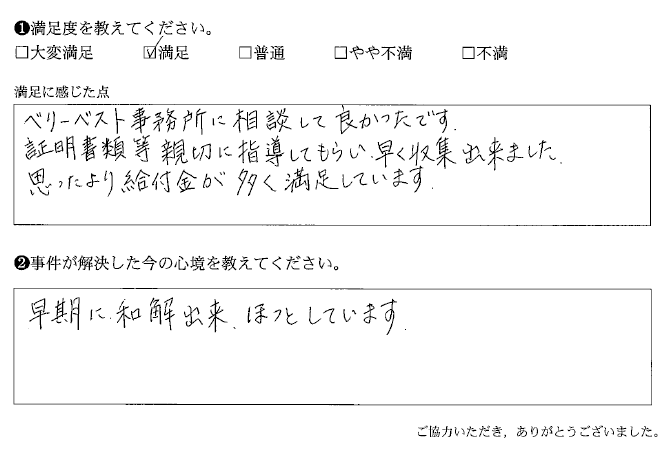 ❶満足度を教えてください。
□大変満足 ☑満足 □普通 □やや不満 □不満
満足に感じた点
ベリーベスト事務所に相談して良かったです.
証明書類等親切に指導してもらい.早く収集出来ました.
思ったより給付金が多く満足しています.
❷事件が解決した今の心境を教えてください。
早期に和解出来、ほっとしています.
ご協力いただき，ありがとうございました。